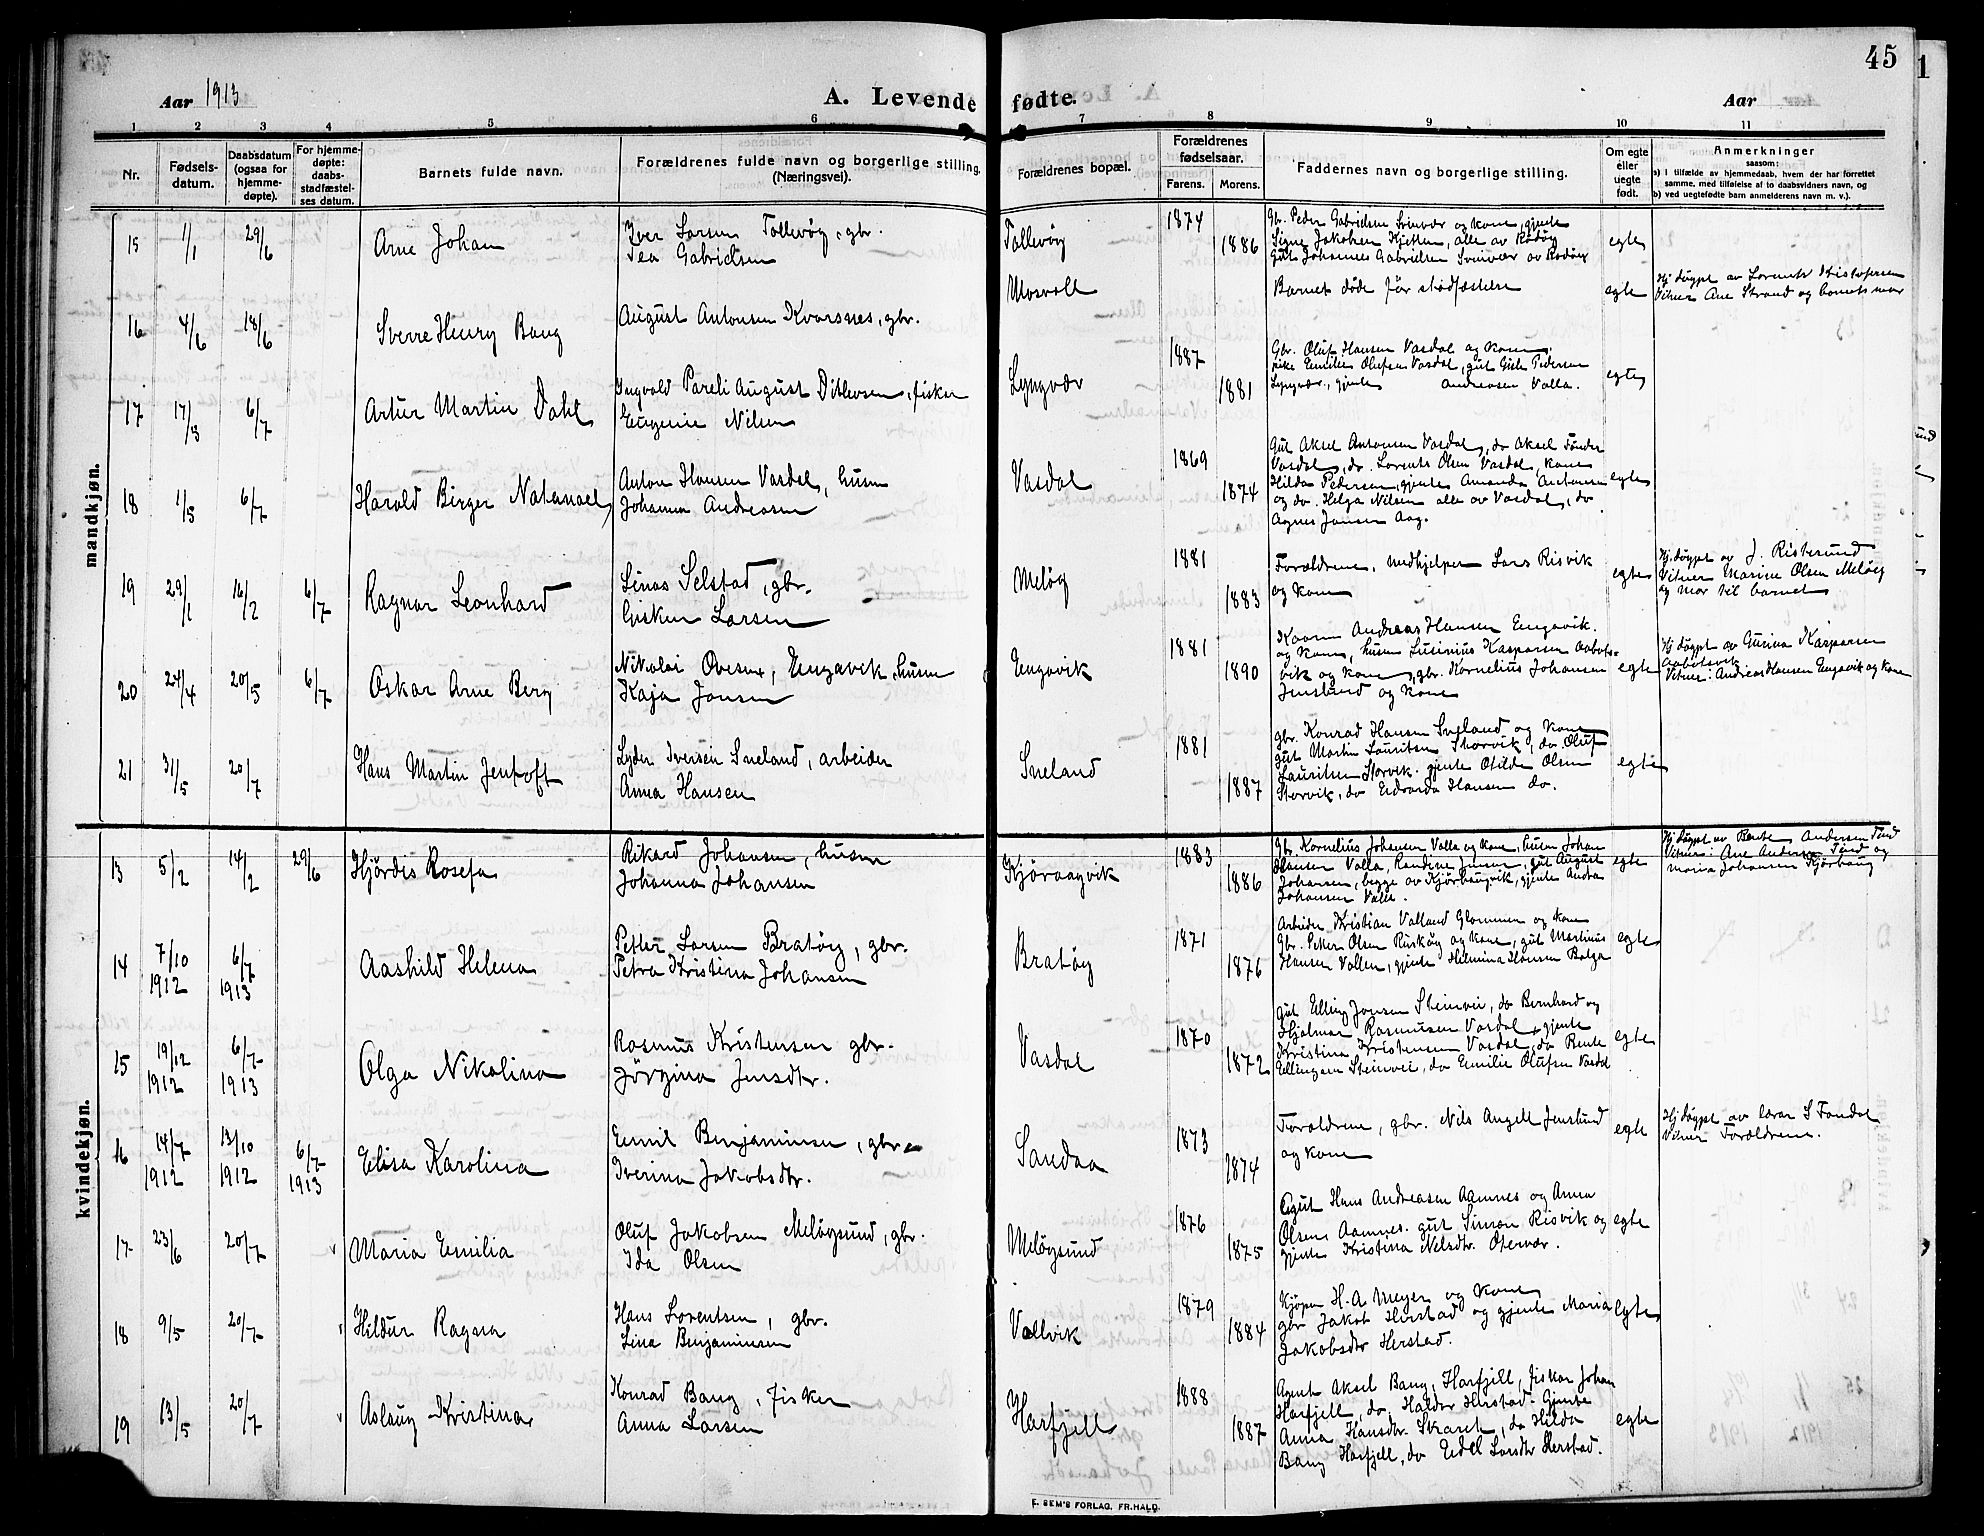 45
Aar 1913
A. Levende fødte.
Aar
1 2 3 4 5 6 7 8 9 10 11
Nr.
Fødsels-
datum.
Daabsdatum
(ogsaa for
hjemme-
døpte).
For hjemme-
døpte:
daabs-
stadfæstel-
ses datum.
Barnets fulde navn.
Forældrenes fulde navn og borgerlige stilling
(Næringsvei).
Forældrenes bopæl.
Forældrenes
fødselsaar.
Farens. Morens.
Faddernes navn og borgerlige stilling.
Om egte
eller
uegte
født.
Anmerkninger
saasom:
a) I tilfælde av hjemmedaab, hvem der har forrettet
samme, med tilføielse af to daabsvidners navn, og
b) ved uegtefødte barn anmelderens navn m. v.).
mandkjøn.
15 1/1 29/6 Arne Johan
Iver Larsen Tollevøy, gbr.
Tea Gabrielsen
Tollevøy 1874 1886
Gbr. Peder Gabrielsen Svinvær og kone, gjente
Signe Jakobsen Kjellen, alle av Rødøy
Gut Johannes Gabrielsen Svinvær av Rødøy
egte
16 4/6 18/6 Sverre Henry Bang
August Antonsen Kvarsnes, gbr.
Mosvoll
Barnet døde før stadfæstelse
egte
Hj. døypt av Lorents Kristofersen
Vitner Ane Strand og barnets mor
17 17/3 6/7 Artur Martin Dahl
Ingvald Pareli August Ditlevsen, fisker
Eugenie Nilsen
Lyngvær 1887 1881
Gbr. Oluf Hansen Vasdal og kone,
pike Emilie Olufsen Vasdal, gut Edel Pedersen
Lyngvær, gjente Andreasen Valla.
egte
18 1/3 6/7 Harald Birger Natanael
Anton Hansen Vasdal, husm
Johanna Andreasen
Vasdal 1869 1874
Gut Aksel Antonsen Vasdal, do Aksel Tønder
Vasdal, do. Lorents Olsen Vasdal, kone
Hilda Pedersen, gjente Amanda Antonsen
og do. Helga Nilsen alle av Vasdal, do
Agnes Jensen Aag.
egte
19 29/1 16/2 6/7 Ragnar Leonhard
Linas Selstad, gbr.
Gisken Larsen
Meløy 1881 1883
Forældrene, medhjelper Lars Risvik
og kone
egte
Hj. døypt av J. Ristesund
Vitner Marine Olsen Meløy
og mor til barnet
20 24/4 20/5 6/7 Oskar Arne Berg
Nikolai Ovesen, Engavik, husm
Kaja Jensen
Engavik 1881 1890
Kaarm Andreas Hansen Engavik
og kone, husm Lusinius Kaspersen Aabots-
vik og kone, gbr. Kornelius Johansen
Jenslund og kone
egte
Hj døypt av Gurina Kaspersen
Aabotsvik
Vitner: Andreas Hansen Engavik og kone
21 31/5 20/7 Hans Martin Jentoft
Lyder Iversen Sneland, arbeider
Anna Hansen
Sneland 1881 1887
gbr. Konrad Hansen Sneland og kone
gut Martin Lauritsen Storvik, do Oluf
Lauritsen Storvik. gjente Otilde Olsen
Storvik, do Edvarda Hansen do.
egte
kvindekjøn.
13 5/2 14/2 29/6 Hjørdis Rosefa
Rikard Johansen, husm
Johanna Johansen
Kjøraagvik 1883 1886
Gbr. Kornelius Johansen Valla og kone, husm Johan
Hansen Valla, Randine Jensen, gut August
Johansen, begge av Kjørbaugvik, gjente Andrea
Johansen Valla.
egte
Hj døypt av Bente Andersen Tind
Vitner: Ane Andersen Tind og
Maria Johansen Kjørbaug
14 7/10 1912 6/7 1913 Aashild Helena
Petter Larsen Bratøy, gbr.
Petra Kristina Johansen
Bratøy 1871 1876
Arbeider Kristian Valland Glommen og kone
Gbr. Peter Olsen Riskøy og kone, gut Martinus
Hansen Vallen, gjente Helmina Hansen Bolga
egte
15 19/12 1912 6/7 1913 Olga Nikolina
Rasmus Kristensen gbr.
Jørgina Jensdtr.
Vasdal 1870 1872
Gut Elling Jensen Steinvei, do Bernhard og
Hjalmar Rasmussen Vasdal, gjente
Kristina Kristensen Vasdal, do Bente
Ellingsen Steinvei, do Emilie Olufsen Vasdal
egte
16 14/7 1912 13/10 1912 6/7 1913 Elisa Karolina
Emil Benjaminsen, gbr.
Iverina Jakobsdtr.
Sandaa 1873 1874
Forældrene, gbr. Nils Angell Jenslund
og kone
egte
Hj døypt av lærar S Fondal
Vitner Forældrene.
17 23/6 20/7 Maria Emilia
Oluf Jakobsen Meløysund, gbr.
Ida Olsen
Meløysund 1876 1875
Gut Hans Andreasen Aamnes og Anna
Olsen Aamnes. gut Simon Risvik og
gjente Kristina Nelsdtr. Otervær.
egte
18 9/5 20/7 Hildur Ragna
Hans Lorentsen, gbr.
Lina Benjaminsen
Vallvik 1879 1884
Kjøpm H. A Meyer og kone
gbr Jakob Herstad og gjente Maria
Jakobsdtr Herstad.
egte
19 13/5 20/7 Aslaug Kristina
Konrad Bang, fisker
Anna Larsen
Harfjell 1888 1887
Agent Aksel Bang, Harfjell, fisker Johan
Harfjell, do Haldor Herstad. Gjente
Anna Hansdtr. Skaret, do Hilda
Bang Harfjell, do Edel Larsdtr Herstad.
egte
E. SEM'S FORLAG, FR.HALD.